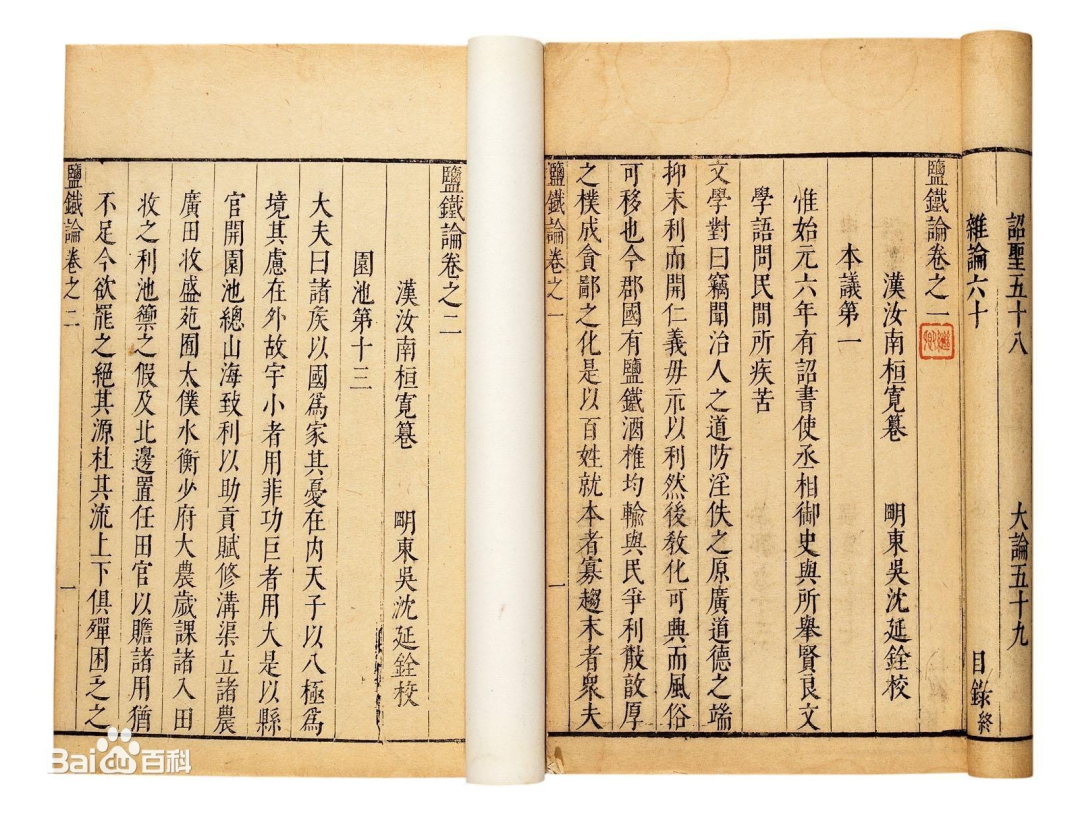 詔聖五十八
大論五十九
雜論六十
目錄終
鹽鐵論卷之一
漢汝南桓寛篹
明東吳沈延銓校
本議第一
惟始元六年有詔書使丞相御史與所舉賢良文
學語問民間所疾苦
文學對曰竊聞治人之道防淫佚之原廣道德之端
抑末利而開仁義毋示以利然後敎化可興而風俗
可移也今郡國有鹽鐵酒榷均輸與民爭利散敦厚
之樸成貪鄙之化是以百姓就本者寡趨末者衆夫
鹽鐵論卷之一
一
鹽鐵論卷之二
漢汝南桓寛篹
明東吳沈延銓校
園池第十三
大夫曰諸矦以國爲家其憂在内天子以八極爲
境其慮在外故宇小者用菲功巨者用大是以縣
官開園池總山海致利以助貢賦修溝渠立諸農
廣田牧盛苑囿太僕水衡少府大農歲課諸入田
牧之利池籞之假及北邊置任田官以贍諸用猶
不足今欲罷之絕其源杜其流上下俱殫困乏之
鹽鐵論卷之二
一
Bai du 百科